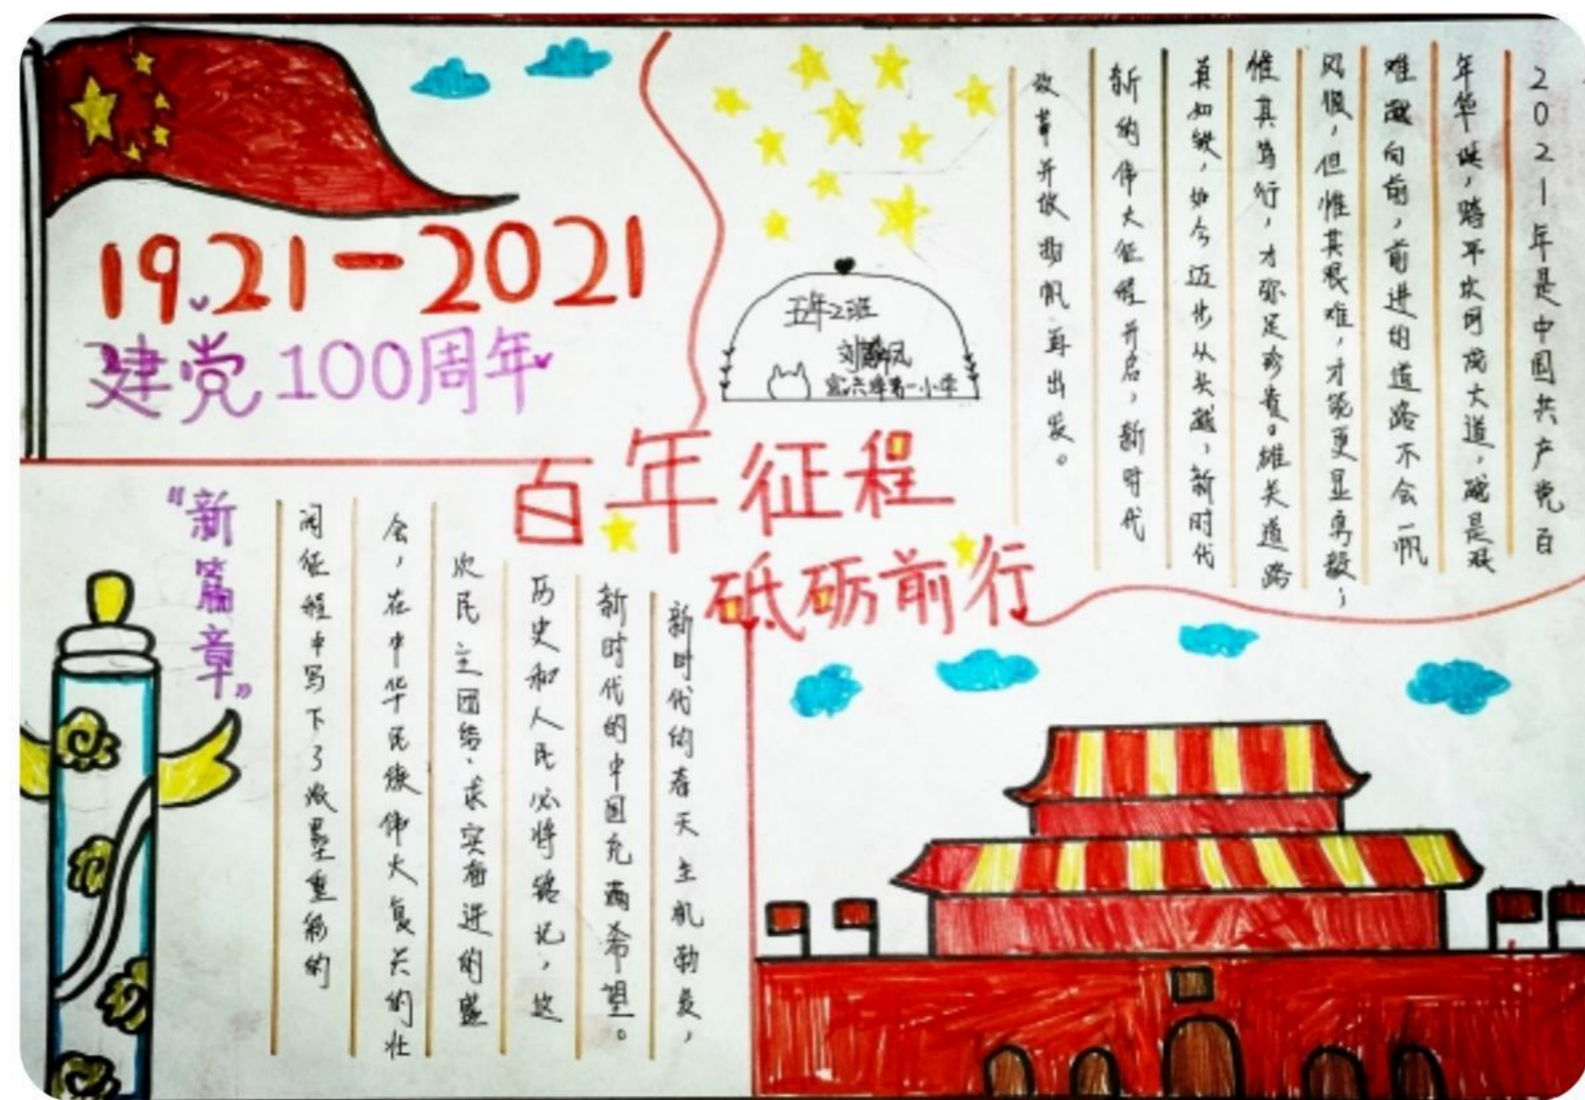 1921-2021
建党100周年
五年2班
百年征程
砥砺前行
2021年是中国共产党百
年华诞,跨平坎坷成大道,越是艰
难越向前,前进的道路不会一帆
风顺,但惟其艰难,才能更显勇毅;
惟其笃行,才弥足珍贵。雄关道路
真如铁,如今迈步从头越,新时代
新的伟大征程开启,新时代
改革开放扬帆再出发。
“新篇章”
新时代的春天生机勃发,
新时代的中国充满希望。
历史和人民必将铭记,这
次民主团结、求实奋进的盛
会,在中华民族伟大复兴的壮
阔征程中写下了浓墨重彩的